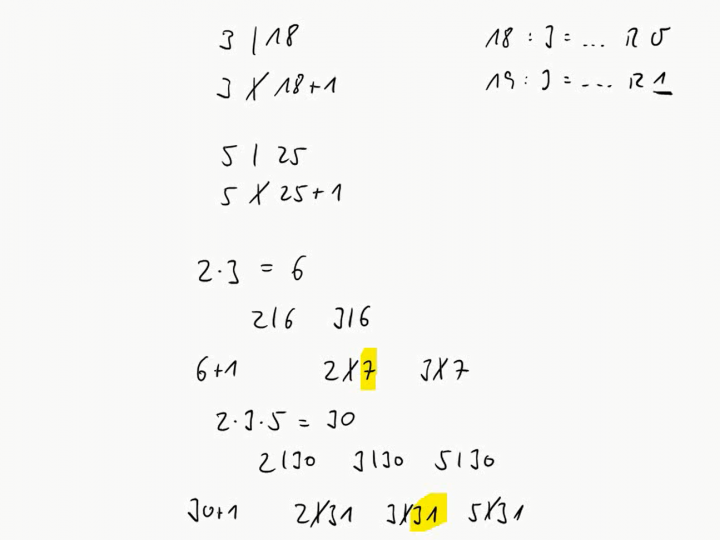 3 | 18
18 : 3 = ... R 0
3 ∤ 18+1
19 : 3 = ... R 1
5 | 25
5 ∤ 25+1
2·3 = 6
2|6 3|6
6+1 2∤7 3∤7
2·3·5 = 30
2|30 3|30 5|30
30+1 2∤31 3∤31 5∤31